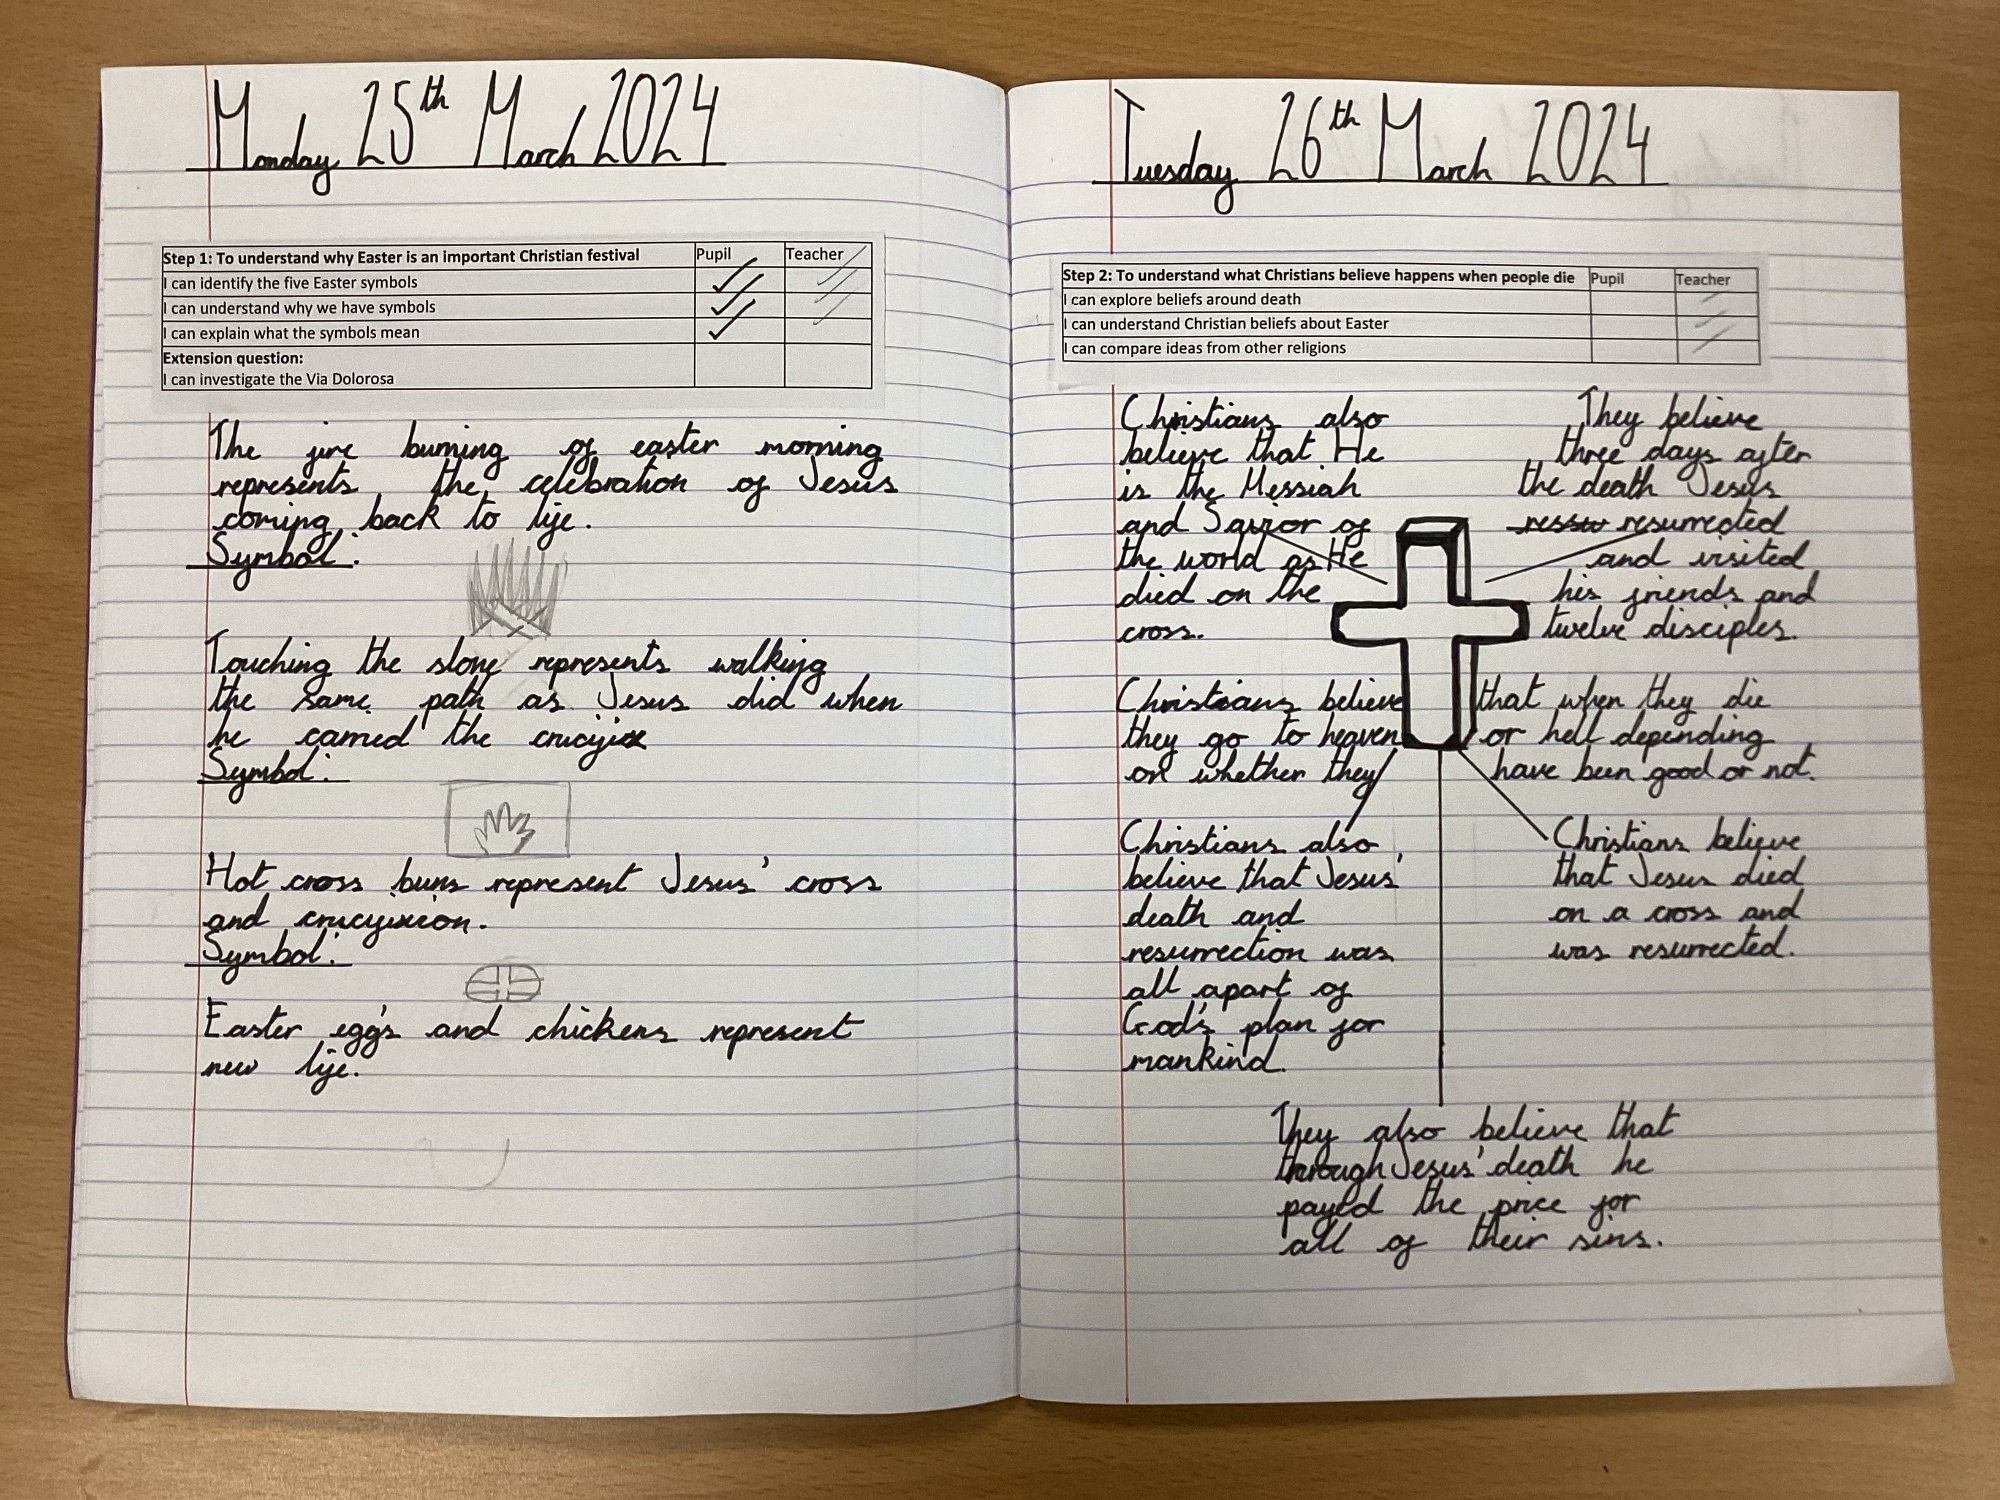 Monday 25th March 2024
Step 1: To understand why Easter is an important Christian festival Pupil Teacher
I can identify the five Easter symbols
I can understand why we have symbols
I can explain what the symbols mean
Extension question:
I can investigate the Via Dolorosa
The fire burning of easter morning
represents the celebration of Jesus
coming back to life.
Symbol:
Touching the stone represents walking
the same path as Jesus did when
he carried the crucifix
Symbol:
Hot cross buns represent Jesus' cross
and crucifixion.
Symbol:
Easter egg's and chickens represent
new life.
Tuesday 26th March 2024
Step 2: To understand what Christians believe happens when people die Pupil Teacher
I can explore beliefs around death
I can understand Christian beliefs about Easter
I can compare ideas from other religions
Christians also
believe that He
is the Messiah
and Savior of
the world as He
died on the
cross.
They believe
three days after
the death Jesus
resurrected
and visited
his friends and
twelve disciples.
Christians believe that when they die
they go to heaven or hell depending
on whether they have been good or not.
Christians also
believe that Jesus'
death and
resurrection was
all apart of
God's plan for
mankind.
Christians believe
that Jesus died
on a cross and
was resurrected.
They also believe that
through Jesus' death he
payed the price for
all of their sins.